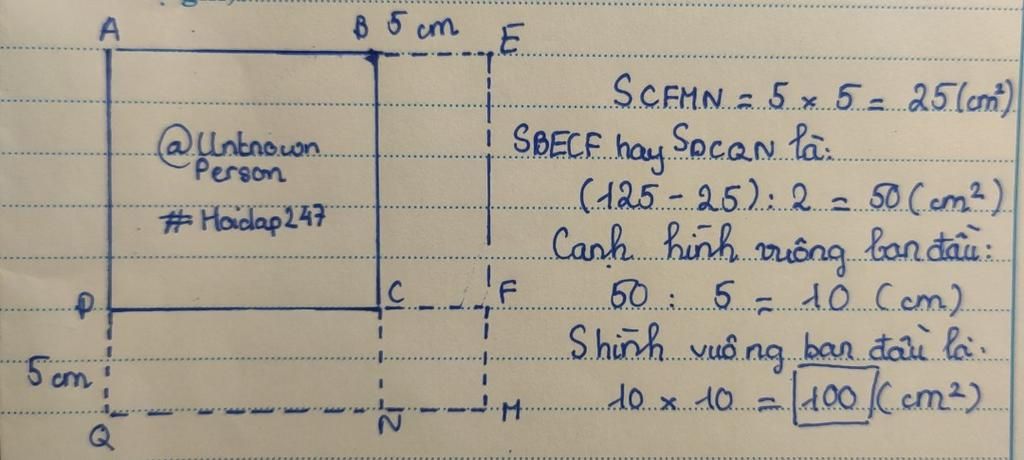 A B 5 cm E
@Unknown
Person
#Hoidap247
D C F
5 cm
Q N M
SCFMN = 5 x 5 = 25 (cm²)
SBECF hay SDCQN là:
(125 - 25) : 2 = 50 (cm²)
Cạnh hình vuông ban đầu:
50 : 5 = 10 (cm)
S hình vuông ban đầu là:
10 x 10 = 100 (cm²)